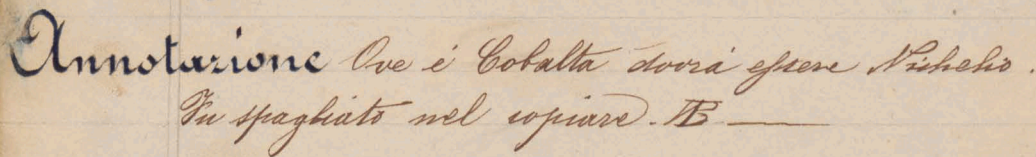 Annotazione Ove é Cobalta dovrá essere Nichelio.
Fu spagliato nel copiare. AB